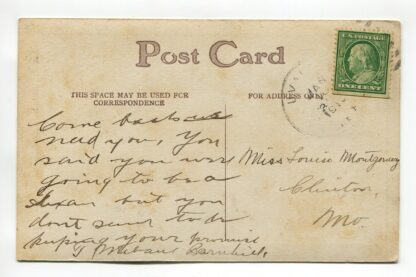 Post Card
THIS SPACE MAY BE USED FOR
CORRESPONDENCE
FOR ADDRESS ONLY
U.S. POSTAGE
ONE CENT
JAN
Come back we
need you, You
said you were
going to be a
but you
don't seem to be
your promise
Miss Louise Montgomery
Clinton,
Mo.